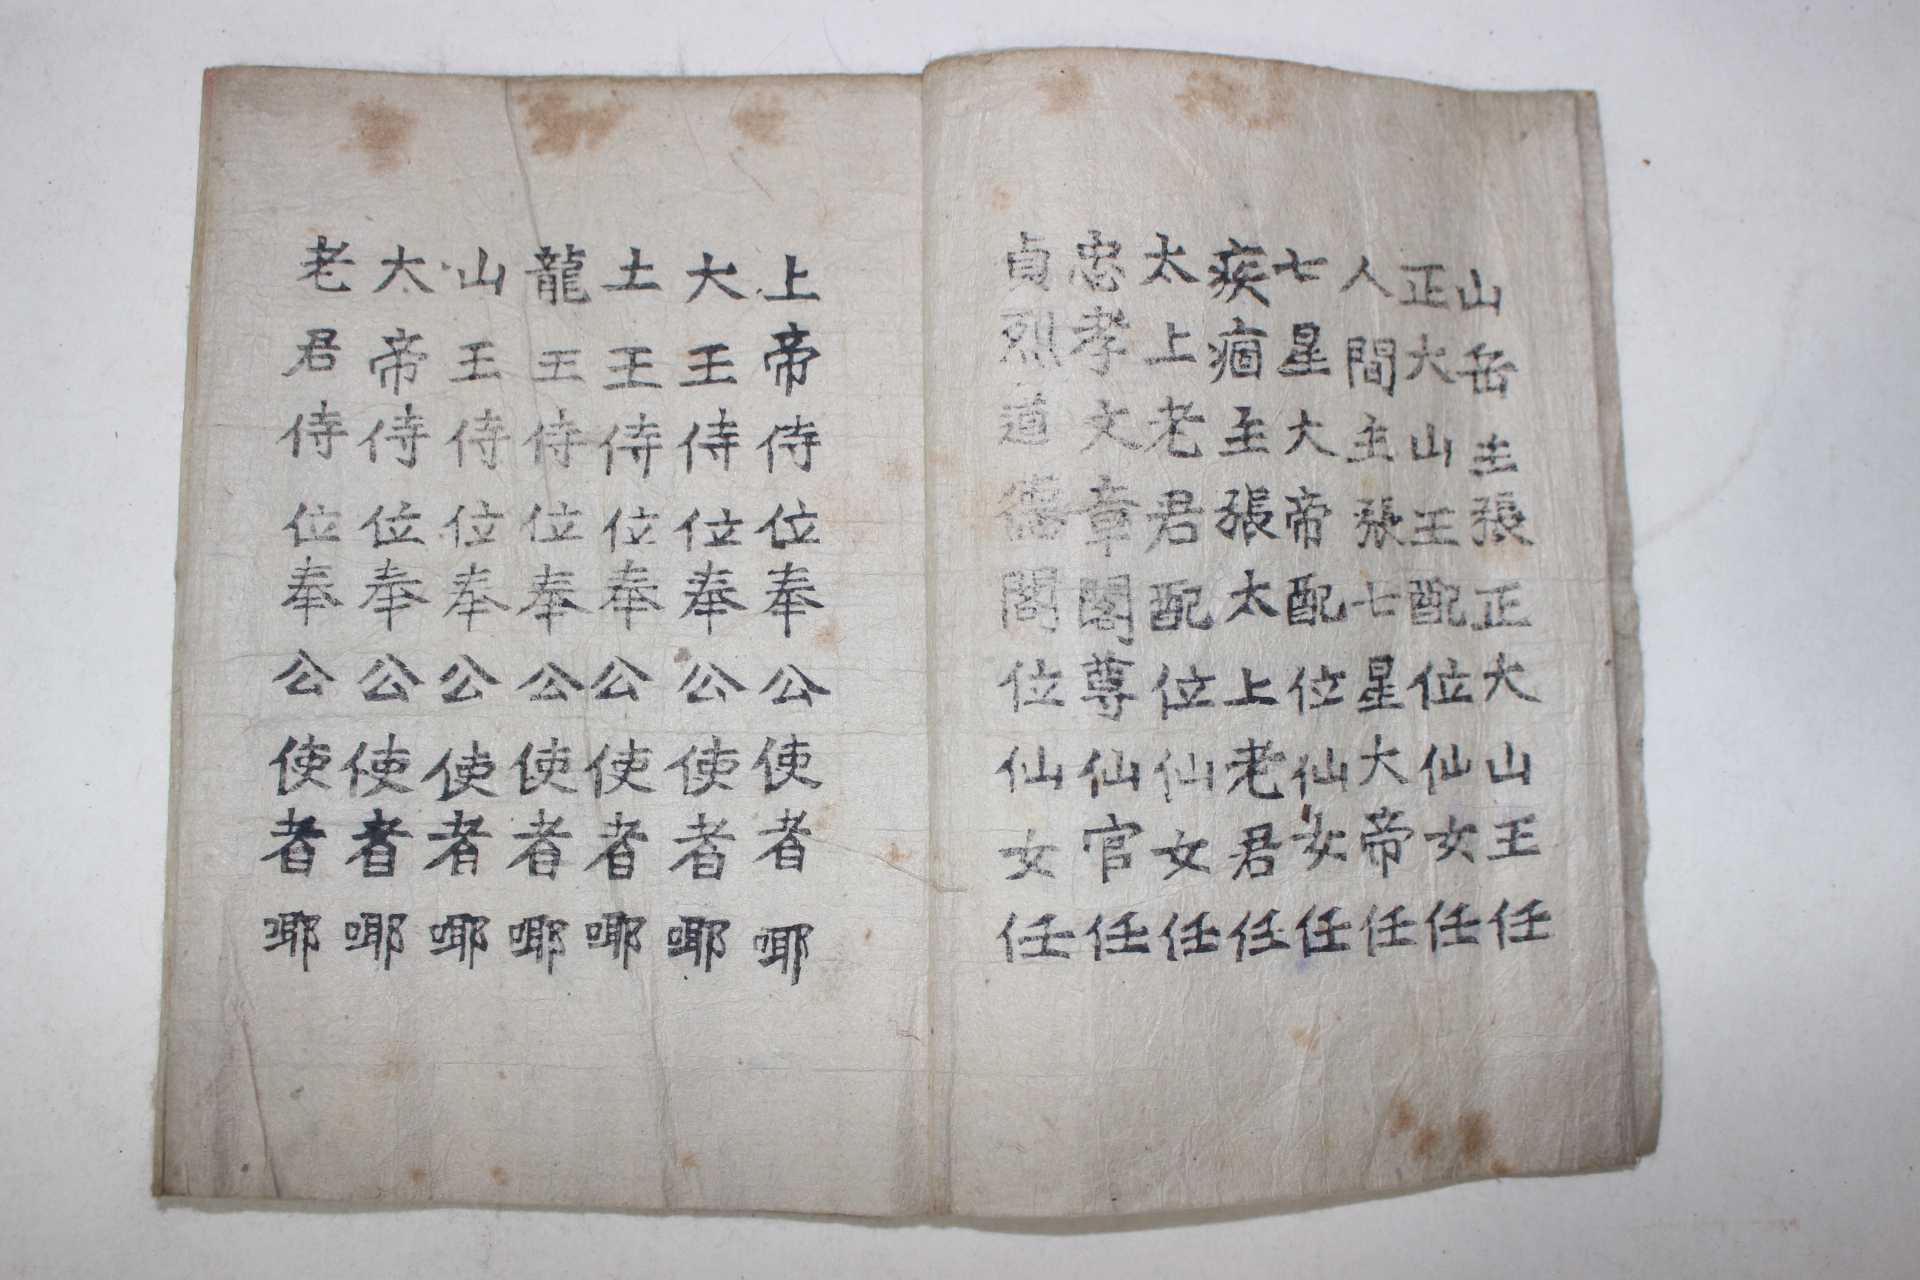 山岳主張正大山王任
正大山王配位仙女任
人間主張七星大帝任
七星大帝配位仙女任
疾痼主張太上老君任
太上老君配位仙女任
忠孝文章閣尊仙官任
貞烈道德閣位仙女任
上帝侍位奉公使者㖿
大王侍位奉公使者㖿
土王侍位奉公使者㖿
龍王侍位奉公使者㖿
山王侍位奉公使者㖿
太帝侍位奉公使者㖿
老君侍位奉公使者㖿